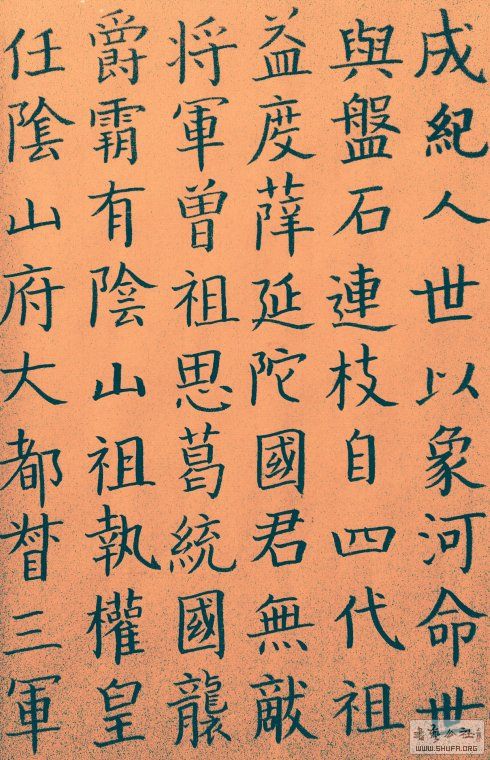 戌紀人世以象河命世
與盤石連枝自四代祖
益度薛延陀國君無敵
将軍曽祖思葛統國襲
爵霸有陰山祖執權皇
任陰山府大都督三軍
WWW.SHUFA.ORG